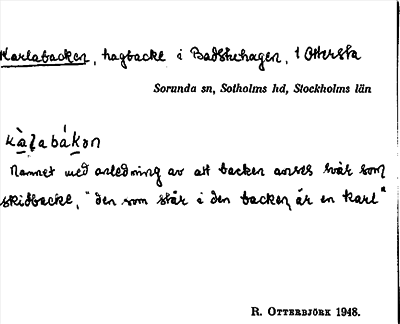 Karlabacken, hagbacke i Badstuhagen, 1 Ottersta
Sorunda sn, Sotholms hd, Stockholms län
kà̱ḻabákən
Namnet med anledning av att backen anses svår som
skidbacke, "den som står i den backen, är en karl"
R. OTTERBJÖRK 1948.